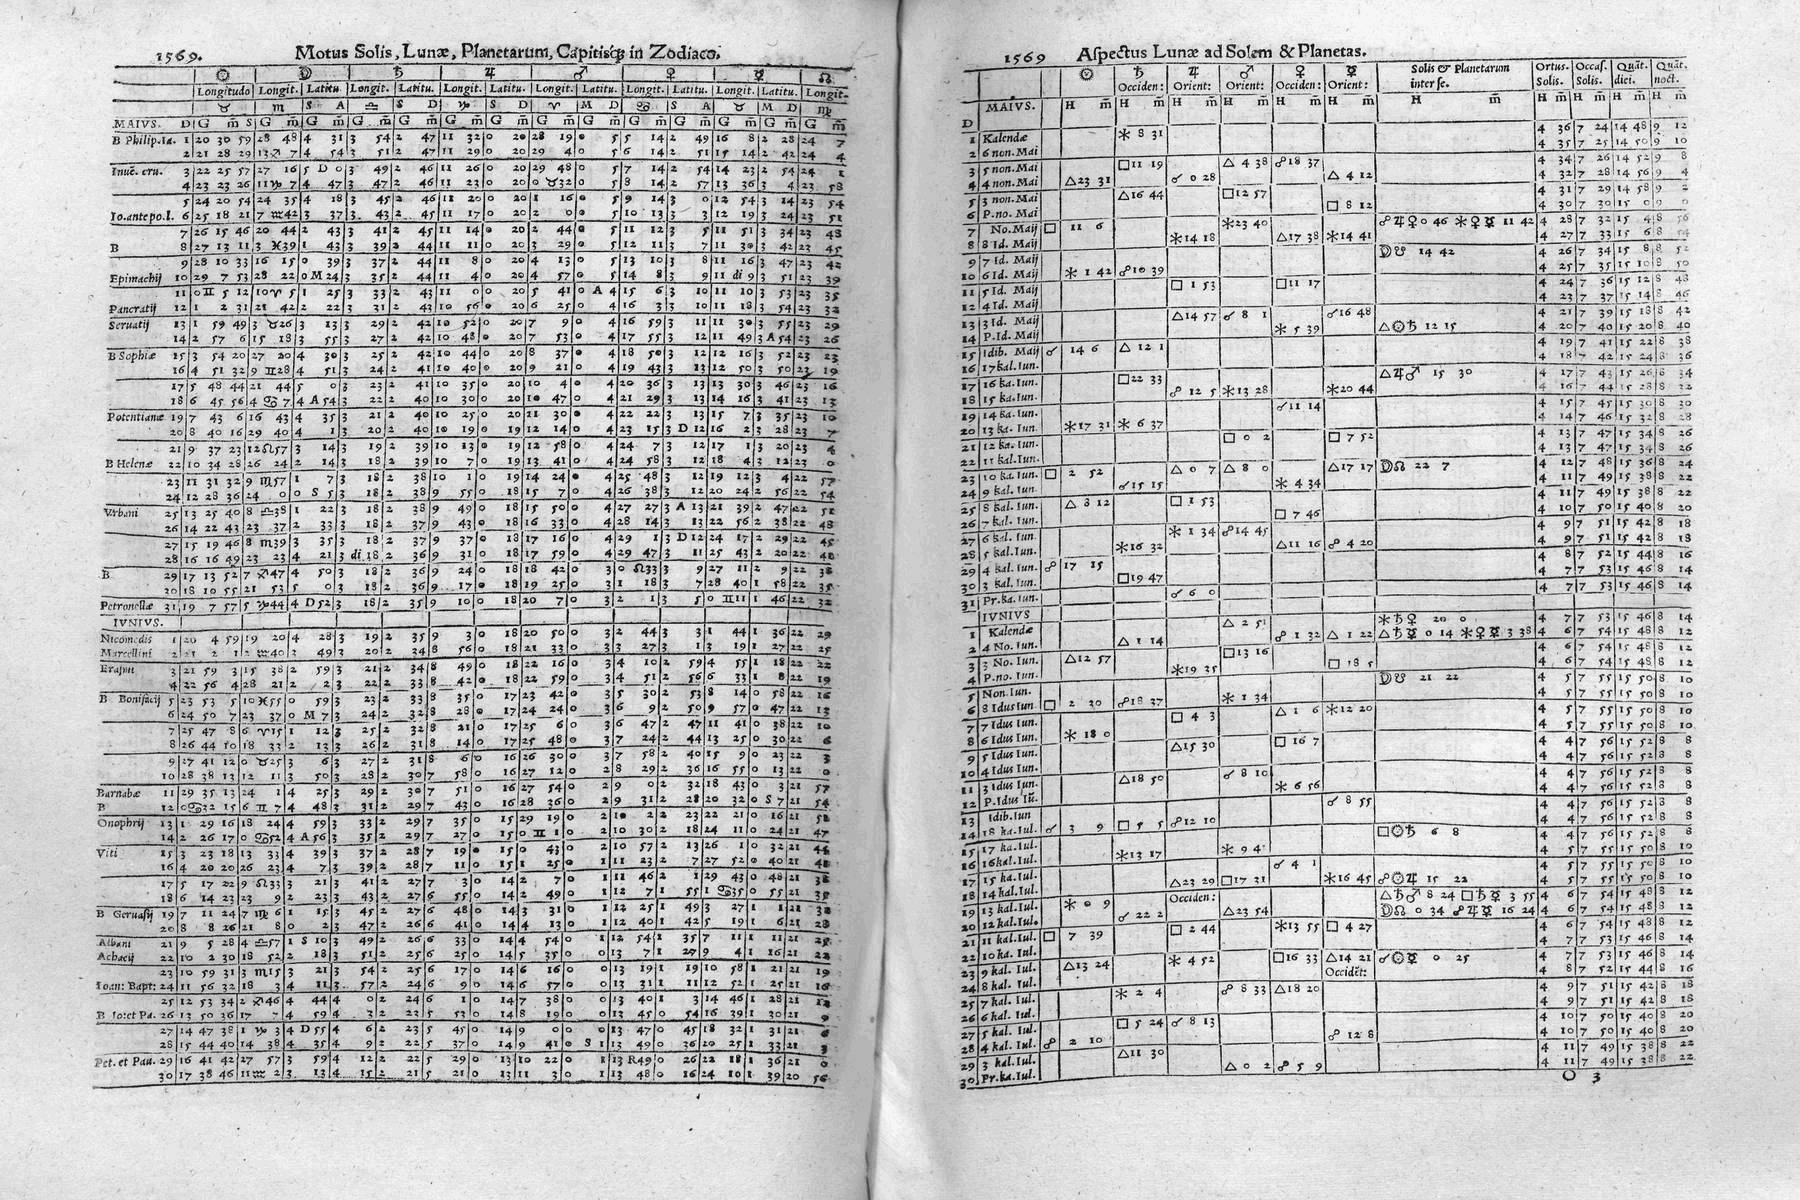 1569. Motus Solis, Lunæ, Planetarum, Capitisq́; in Zodiaco.
☉ ☽ ♄ ♃ ♂ ♀ ☿ ☊
Longitudo Longit. Latitu. Longit. Latitu. Longit. Latitu. Longit. Latitu. Longit. Latitu. Longit. Latitu. Longit.
♉ ♏ S A ♎ S D ♑ S D ♈ M D ♋ S A ♉ M D ♍
MAIVS. D G m̄ S G m̄ G m̄ G m̄ G m̄ G m̄ G m̄ G m̄ G m̄ G m̄ G m̄ G m̄ G m̄ G m̄
B Philip.Ia. 1 20 30 59 28 48 4 31 3 54 2 47 11 32 0 20 28 19 0 5 5 14 2 49 16 8 2 28 24 7
2 21 28 29 13♐ 7 4 54 3 51 2 47 11 29 0 20 29 4 0 5 6 14 2 51 15 14 2 42 24 4
Inuē. cru. 3 22 25 57 27 16 5 D 0 3 49 2 46 11 26 0 20 29 48 0 5 7 14 2 54 14 23 2 54 24 1
4 23 23 26 11♑ 7 4 47 3 47 2 46 11 23 0 20 0 ♉32 0 5 8 14 2 57 13 36 3 4 23 58
5 24 20 54 24 35 4 18 3 45 2 46 11 20 0 20 1 16 0 5 9 14 3 0 12 54 3 14 23 54
Io.ante po.l. 6 25 18 21 7 ♒42 3 37 3 43 2 45 11 17 0 20 2 0 0 5 10 13 3 3 12 19 3 24 23 51
7 26 15 46 20 44 2 43 3 41 2 45 11 14 0 20 2 44 0 5 11 12 3 5 11 51 3 34 23 48
B 8 27 13 11 3 ♓39 1 43 3 39 2 44 11 11 0 20 3 29 0 5 12 11 3 7 11 30 3 42 23 45
9 28 10 33 16 15 0 39 3 37 2 44 11 8 0 20 4 13 0 5 13 10 3 8 11 16 3 47 23 42
Epimachij 10 29 7 53 28 22 0 M 24 3 35 2 44 11 4 0 20 4 57 0 5 14 8 3 9 11 di 9 3 51 23 39
11 0♊ 5 12 10♈ 5 1 25 3 33 2 43 11 0 0 20 5 41 0 A 4 15 6 3 10 11 10 3 53 23 35
Pancratij 12 1 2 31 21 42 2 22 3 31 2 43 10 56 0 20 6 25 0 4 16 3 3 10 11 18 3 54 23 32
Seruatij 13 1 59 49 3 ♉26 3 13 3 29 2 42 10 52 0 20 7 9 0 4 16 59 3 11 11 30 3 55 23 29
14 2 57 6 15 18 3 55 3 27 2 42 10 48 0 20 7 53 0 4 17 55 3 12 11 49 3 A 54 23 26
B Sophiæ 15 3 54 20 27 20 4 30 3 25 2 42 10 44 0 20 8 37 0 4 18 50 3 12 12 16 3 52 23 23
16 4 51 32 9 ♊28 4 51 3 24 2 41 10 40 0 20 9 21 0 4 19 43 3 13 12 50 3 50 23 19
17 5 48 44 21 44 5 0 3 23 2 41 10 35 0 20 10 4 0 4 20 36 3 13 13 30 3 46 23 16
18 6 45 56 4 ♋ 7 4 A 54 3 22 2 40 10 30 0 20 10 47 0 4 21 29 3 13 14 16 3 41 23 13
Potentianæ 19 7 43 6 16 43 4 35 3 21 2 40 10 25 0 20 11 30 0 4 22 22 3 13 15 7 3 35 23 10
20 8 40 16 29 40 4 1 3 20 2 40 10 19 0 19 12 14 0 4 23 15 3 D 12 16 2 3 28 23 7
21 9 37 23 12♌57 3 14 3 19 2 39 10 13 0 19 12 58 0 4 24 7 3 12 17 1 3 20 23 4
B Helenæ 22 10 34 28 26 24 2 14 3 18 2 39 10 7 0 19 13 41 0 4 24 58 3 12 18 4 3 12 23 0
23 11 31 32 9 ♍57 1 7 3 18 2 38 10 1 0 19 14 24 0 4 25 48 3 12 19 12 3 4 22 57
24 12 28 36 24 0 0 S 5 3 18 2 38 9 55 0 18 15 7 0 4 26 38 3 12 20 24 2 56 22 54
Vrbani 25 13 25 40 8 ♎38 1 22 3 18 2 38 9 49 0 18 15 50 0 4 27 27 3 A 13 21 39 2 47 22 51
26 14 22 43 23 37 2 33 3 18 2 37 9 43 0 18 16 33 0 4 28 14 3 13 22 56 2 38 22 48
27 15 19 46 8 ♏39 3 35 3 18 2 37 9 37 0 18 17 16 0 4 29 1 3 D 12 24 17 2 29 22 45
28 16 16 49 23 23 4 21 3 di 18 2 36 9 31 0 18 17 59 0 4 29 47 3 11 25 43 2 20 22 40
B 29 17 13 52 7 ♐47 4 50 3 18 2 36 9 24 0 18 18 42 0 3 0 ♌33 3 9 27 11 2 9 22 38
30 18 10 55 21 53 5 0 3 18 2 36 9 17 0 18 19 25 0 3 1 18 3 7 28 40 1 58 22 35
Petronellæ 31 19 7 57 5 ♑44 4 D 52 3 18 2 35 9 10 0 18 20 7 0 3 2 1 3 5 0 ♊11 1 46 22 32
IVNIVS.
Nicomedis 1 20 4 59 19 20 4 28 3 19 2 35 9 3 0 18 20 50 0 3 2 44 3 3 1 44 1 36 22 29
Marcellini 2 21 2 1 2 ♒40 3 49 3 20 2 34 8 56 0 18 21 33 0 3 3 27 3 1 3 19 1 27 22 25
Erasmi 3 21 59 3 15 38 2 59 3 21 2 34 8 49 0 18 22 16 0 3 4 10 2 59 4 55 1 18 22 22
4 22 56 4 28 21 2 2 3 22 2 33 8 42 0 18 22 59 0 3 4 51 2 56 6 33 1 8 22 19
B Bonifacij 5 23 53 5 10♓55 0 59 3 23 2 33 8 35 0 17 23 42 0 3 5 30 2 53 8 14 0 58 22 16
6 24 50 7 23 37 0 M 7 3 24 2 32 8 28 0 17 24 24 0 3 6 9 2 50 9 57 0 47 22 13
7 25 47 8 6 ♈15 1 12 3 25 2 32 8 21 0 17 25 6 0 3 6 47 2 47 11 41 0 38 22 10
8 26 44 10 18 33 2 13 3 26 2 31 8 14 0 17 25 48 0 3 7 24 2 44 13 25 0 30 22 6
9 27 41 12 0 ♉25 3 6 3 27 2 31 8 6 0 16 26 30 0 3 7 58 2 40 15 9 0 22 22 3
10 28 38 13 12 11 3 50 3 28 2 30 7 58 0 16 27 12 0 2 8 29 2 36 16 55 0 13 22 0
Barnabæ 11 29 35 13 24 1 4 25 3 29 2 30 7 51 0 16 27 54 0 2 9 0 2 32 18 43 0 3 21 57
B 12 0♋32 15 6 ♊ 7 4 48 3 31 2 29 7 43 0 16 28 36 0 2 9 31 2 28 20 32 0 S 7 21 54
Onophrij 13 1 29 16 18 24 4 59 3 33 2 29 7 35 0 15 29 19 0 2 10 2 2 23 22 21 0 16 21
14 2 26 17 0 ♋52 4 A 56 3 35 2 29 7 27 0 15 0 ♊ 1 0 2 10 30 2 18 24 11 0 24 21 47
Viti 15 3 23 18 13 33 4 39 3 37 2 28 7 19 0 15 0 43 0 2 10 57 2 13 26 1 0 32 21 44
16 4 20 20 26 23 4 7 3 39 2 28 7 11 0 15 1 25 0 1 11 23 2 7 27 52 0 40 21
17 5 17 22 9 ♌33 3 21 3 41 2 27 7 3 0 14 2 7 0 1 11 46 2 1 29 43 0 48 21
18 6 14 23 23 9 2 23 3 43 2 27 6 55 0 14 2 49 0 1 12 7 1 55 1 ♋35 0 55 21
B Geruasij 19 7 11 24 7 ♍ 6 1 15 3 45 2 27 6 48 0 14 3 31 0 1 12 25 1 49 3 27 1 1 21
20 8 8 26 21 8 0 2 3 47 2 26 6 41 0 14 4 13 0 1 12 40 1 42 5 19 1 6 21
Albani 21 9 5 28 4 ♎57 1 S 10 3 49 2 26 6 33 0 14 4 54 0 1 12 54 1 35 7 11 1 11 21 25
Achacij 22 10 2 30 18 52 2 18 3 51 2 25 6 25 0 14 5 35 0 0 13 7 1 27 9 4 1 16 21 22
23 10 59 31 3 ♏15 3 21 3 54 2 25 6 17 0 14 6 16 0 0 13 19 1 19 10 58 1 21 21 19
Ioan: Bapt: 24 11 56 32 18 3 4 11 3 57 2 24 6 9 0 14 6 57 0 0 13 31 1 11 12 52 1 25 21 16
25 12 53 34 2 ♐46 4 44 4 0 2 24 6 1 0 14 7 38 0 0 13 40 1 3 14 46 1 28 21
B Io:et Pa. 26 13 50 36 17 7 4 59 4 3 2 23 5 53 0 14 8 19 0 0 13 45 0 54 16 39 1 30 21 9
27 14 47 38 1 ♑ 3 4 D 55 4 6 2 23 5 45 0 14 9 0 0 0 13 47 0 45 18 32 1 31 21 6
28 15 44 40 14 38 4 35 4 9 2 22 5 37 0 14 9 41 0 S 1 13 49 0 36 20 25 1 33 21 3
Pet. et Pau. 29 16 41 42 27 57 3 59 4 12 2 22 5 29 0 13 10 22 0 1 13 R49 0 26 22 18 1 36 21 0
30 17 38 46 11♒ 2 3 13 4 15 2 21 5 21 0 13 11 3 0 1 13 48 0 16 24 10 1 39 20 56
1569 Aspectus Lunæ ad Solem & Planetas.
☉ ♄ ♃ ♂ ♀ ☿ Solis & Planetarum inter se. Ortus. Solis. Occas. Solis. Quāt. diei. Quāt. noct.
Occiden: Orient: Orient: Occiden: Orient:
MAIVS. H m̄ H m̄ H m̄ H m̄ H m̄ H m̄ H m̄ H m̄ H m̄ H m̄ H m̄
D
1 Kalendæ ⚹ 8 31 4 36 7 24 14 48 9 12
2 6 non. Mai 4 35 7 25 14 50 9 10
3 5 non. Mai □11 19 △ 4 38 ☍18 37 4 34 7 26 14 52 9 8
4 4 non. Mai △23 31 ☌ 0 28 △ 4 12 4 32 7 28 14 56 9 4
5 3 non. Mai △16 44 □12 57 4 31 7 29 14 58 9 2
6 P.no. Mai □ 8 12 4 30 7 30 15 0 9 0
7 No. Maij □ 11 6 ⚹23 40 ☍♃♀ 0 46 ⚹♀☿ 11 42 4 28 7 32 15 4 8 56
8 8 Id. Maij ⚹14 18 △17 38 ⚹14 41 4 27 7 33 15 6 8 54
9 7 Id. Maij ☽☋ 14 42 4 26 7 34 15 8 8 52
10 6 Id. Maij ⚹ 1 42 ☍10 39 4 25 7 35 15 10 8 50
11 5 Id. Maij □ 1 53 □11 17 4 24 7 36 15 12 8 48
12 4 Id. Maij 4 23 7 37 15 14 8 46
13 3 Id. Maij △14 57 ☌ 8 1 ☌16 48 4 21 7 39 15 18 8 42
14 P.Id. Maij ⚹ 5 39 △☉♄ 12 15 4 20 7 40 15 20 8 40
15 Idib. Maij ☌ 14 6 △ 12 1 4 19 7 41 15 22 8 38
16 17 kal.Iun. 4 18 7 42 15 24 8 36
17 16 ka. Iun. □22 33 △♃♂ 15 30 4 17 7 43 15 26 8 34
18 15 ka. Iun. ☍ 12 5 ⚹13 28 ⚹20 44 4 16 7 44 15 28 8 32
19 14 ka. Iun. ☌11 14 4 15 7 45 15 30 8 30
20 13 ka. Iun. ⚹17 31 ⚹ 6 37 4 14 7 46 15 32 8 28
21 12 ka. Iun. □ 0 2 □ 7 52 4 13 7 47 15 34 8 26
22 11 kal.Iun. 4 13 7 47 15 34 8 26
23 10 ka. Iun. □ 2 52 △ 0 7 △ 8 0 △17 17 ☽☊ 22 7 4 12 7 48 15 36 8 24
24 9 kal. Iun. ☌15 15 ⚹ 4 34 4 11 7 49 15 38 8 22
25 8 kal. Iun. △ 8 12 □ 1 53 4 11 7 49 15 38 8 22
26 7 kal. Iun. □ 7 46 4 10 7 50 15 40 8 20
27 6 kal. Iun. ⚹ 1 34 ☍14 45 4 9 7 51 15 42 8 18
28 5 kal. Iun. ⚹16 32 △11 16 ☍ 4 20 4 9 7 51 15 42 8 18
29 4 kal. Iun. ☍ 17 15 4 8 7 52 15 44 8 16
30 3 kal. Iun. □19 47 4 7 7 53 15 46 8 14
31 Pr.ka. Iun. ☌ 6 0 4 7 7 53 15 46 8 14
IVNIVS
1 Kalendæ △ 2 51 ⚹♄♀ 20 0 4 7 7 53 15 46 8 14
2 4 No. Iun. △ 1 14 ☍ 1 32 △ 1 22 △♄☿ 0 14 ⚹♀☿ 3 38 4 6 7 54 15 48 8 12
3 3 No. Iun. △12 57 □13 16 4 6 7 54 15 48 8 12
4 P.no. Iun. ⚹19 35 □ 18 5 4 6 7 54 15 48 8 12
5 Non. Iun. ☽☋ 21 22 4 5 7 55 15 50 8 10
6 8 Idus Iun. □ 2 30 ☍18 37 ⚹ 1 34 4 5 7 55 15 50 8 10
7 7 Idus Iun. □ 4 3 △ 1 6 ⚹12 20 4 5 7 55 15 50 8 10
8 6 Idus Iun. ⚹ 18 0 4 5 7 55 15 50 8 10
9 5 Idus Iun. △15 30 □ 16 7 4 4 7 56 15 52 8 8
10 4 Idus Iun. 4 4 7 56 15 52 8 8
11 3 Idus Iun. △18 50 ☌ 8 10 4 4 7 56 15 52 8 8
12 P.Idus Iū. ⚹ 6 56 4 4 7 56 15 52 8 8
13 Idib. Iun ☌ 8 55 4 4 7 56 15 52 8 8
14 18 ka. Iul. ☌ 3 9 □ 5 5 ☍12 10 □☉♄ 6 8 4 4 7 56 15 52 8 8
15 17 ka. Iul. ⚹13 17 ⚹ 9 4 5 7 55 15 50 8 10
16 16 kal. Iul. ☌ 4 1 4 5 7 55 15 50 8 10
17 15 ka. Iul. △23 29 □17 31 ⚹16 45 ☍☉♃ 15 22 4 5 7 55 15 50 8 10
18 14 kal. Iul. Occiden: △♄♂ 8 24 □♄☿ 3 55 4 6 7 54 15 48 8 12
19 13 kal. Iul. ⚹ 0 9 ☌ 22 2 △23 54 ☽☊ 0 34 ☍♃☿ 16 24 4 6 7 54 15 48 8 12
20 12 kal. Iul. 4 6 7 54 15 48 8 12
21 11 kal. Iul. □ 7 39 □ 2 44 ⚹13 55 □ 4 27 4 7 7 53 15 46 8 14
22 10 ka. Iul.
23 9 kal. Iul. △13 24 ⚹ 4 52 □16 33 △14 21 ☌☉☿ 0 25 4 7 7 53 15 46 8 14
24 8 kal. Iul. Occidēt: 4 8 7 52 15 44 8 16
25 7 kal. Iul. ⚹ 2 4 ☍ 8 33 △18 20 4 9 7 51 15 42 8 18
26 6 kal. Iul. 4 9 7 51 15 42 8 18
27 5 kal. Iul. □ 5 24 ☌ 8 13 4 10 7 50 15 40 8 20
28 4 kal. Iul. ☍ 2 10 ☍ 12 8 4 10 7 50 15 40 8 20
29 3 kal. Iul. △11 30 4 11 7 49 15 38 8 22
30 Pr.ka. Iul. △ 0 2 ☍ 5 9 4 11 7 49 15 38 8 22
O 3